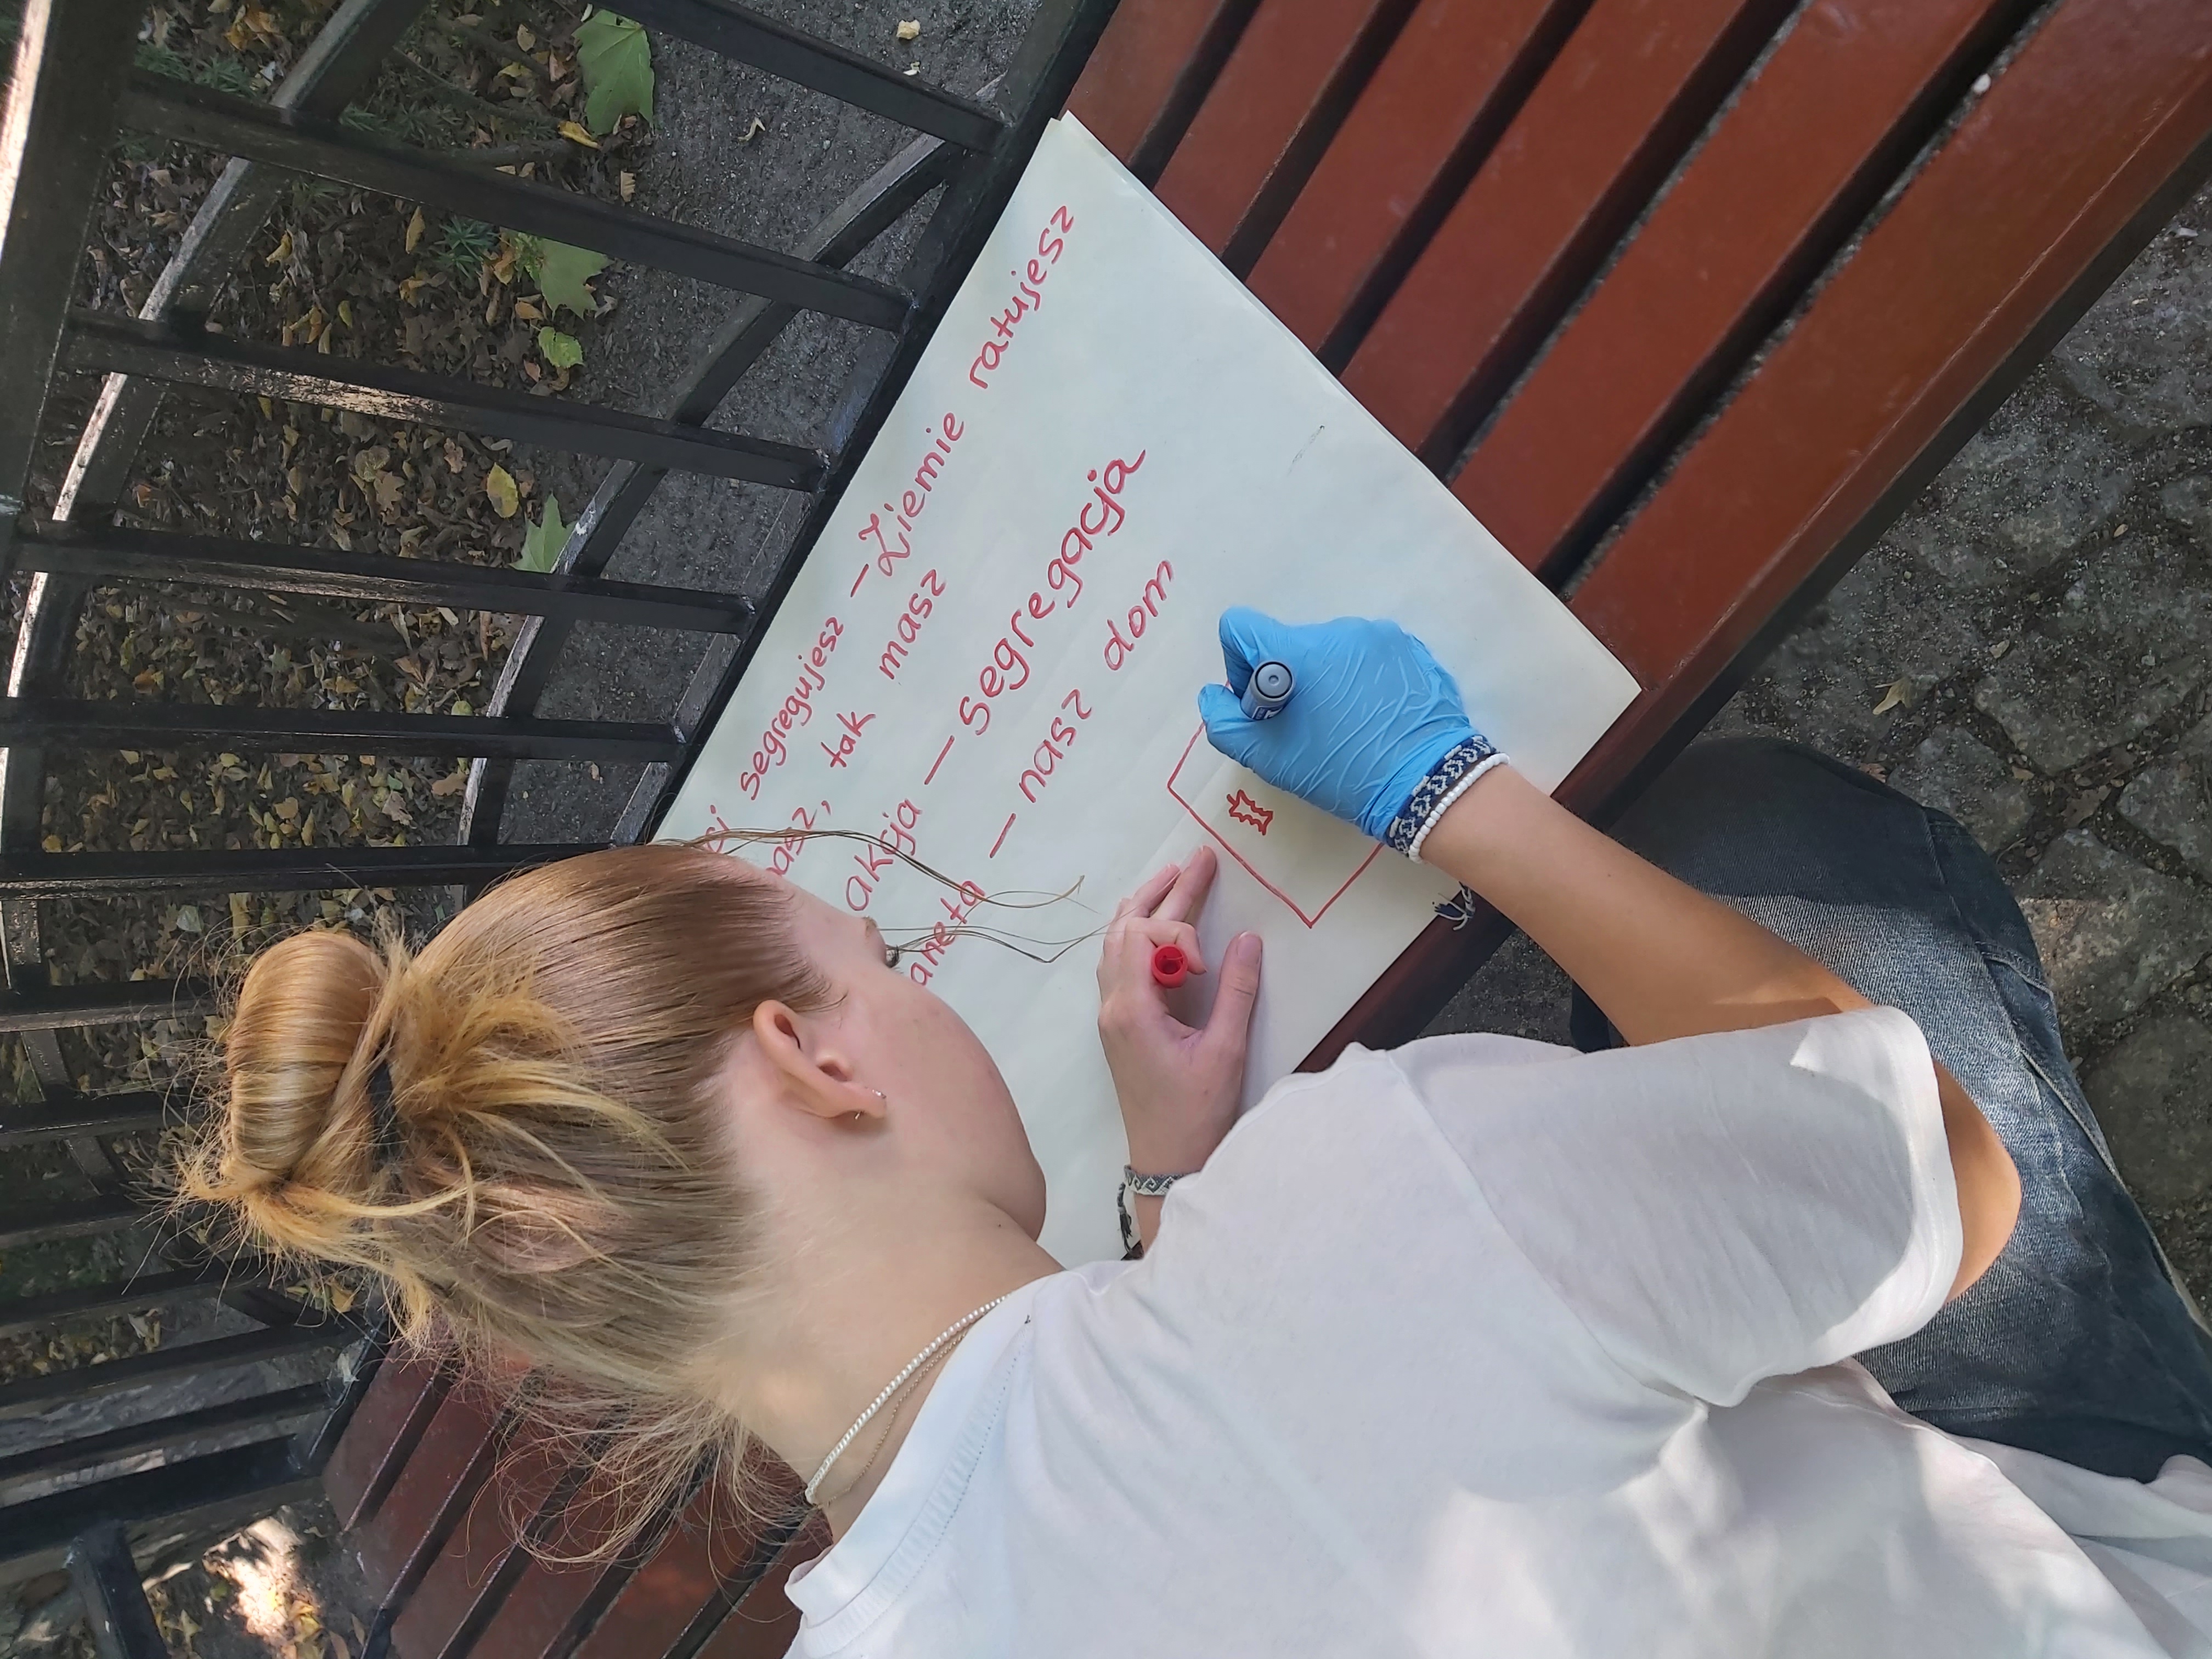 segregujesz – Ziemie ratujesz
tak masz
akcja – segregacja
– nasz dom